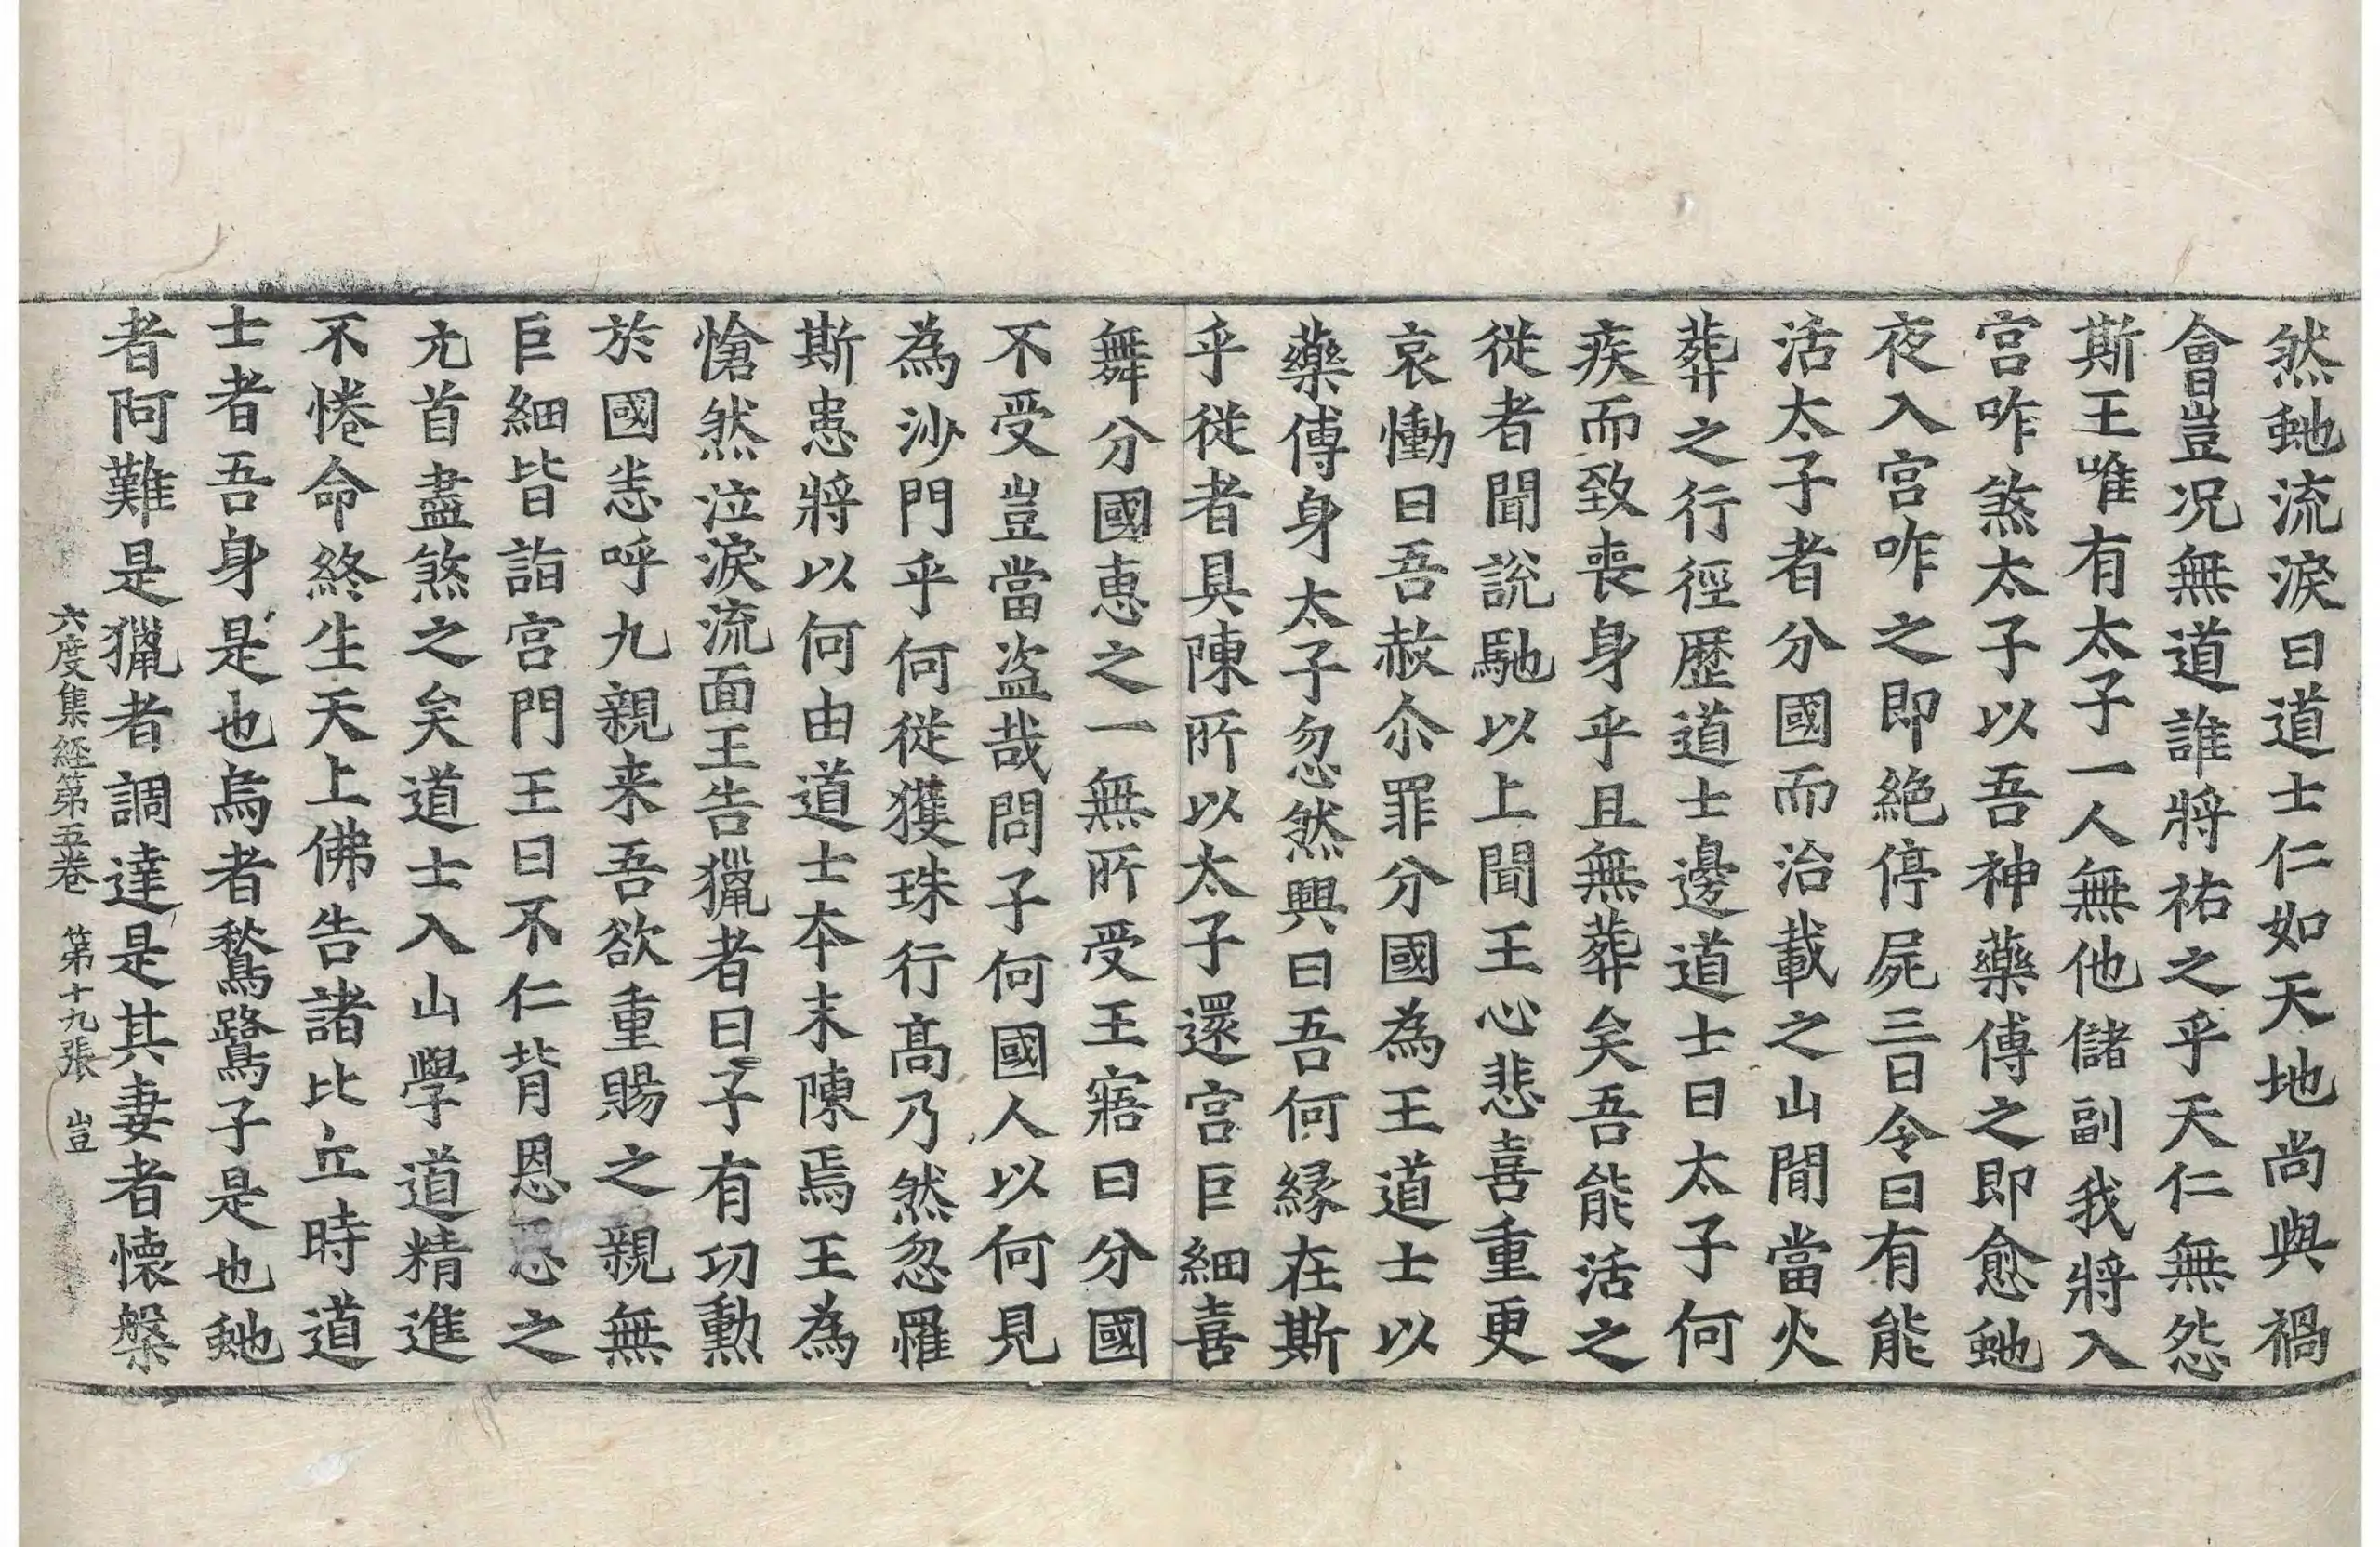 然虵流淚曰道士仁如天地尚與禍
會豈況無道誰將祐之乎天仁無怨
斯王唯有太子一人無他儲副我將入
宮咋煞太子以吾神藥傅之即愈虵
夜入宮咋之即絶停屍三日令曰有能
活太子者分國而治載之山間當火
葬之行徑歷道士邊道士曰太子何
疾而致喪身乎且無葬矣吾能活之
從者聞說馳以上聞王心悲喜重更
哀慟曰吾赦尒罪分國為王道士以
藥傅身太子忽然興曰吾何縁在斯
乎從者具陳所以太子還宮巨細喜
舞分國惠之一無所受王寤曰分國
不受豈當盜哉問子何國人以何見
為沙門乎何從獲珠行高乃然忽罹
斯患將以何由道士本末陳焉王為
愴然泣淚流面王告獵者曰子有功勳
於國恚呼九親来吾欲重賜之親無
巨細皆詣宮門王曰不仁背恩惡之
元首盡煞之矣道士入山學道精進
不惓命終生天上佛告諸比丘時道
士者吾身是也烏者鶖鷺子是也虵
者阿難是獵者調達是其妻者懐槃
六度集経第五巻 第十九張 豈